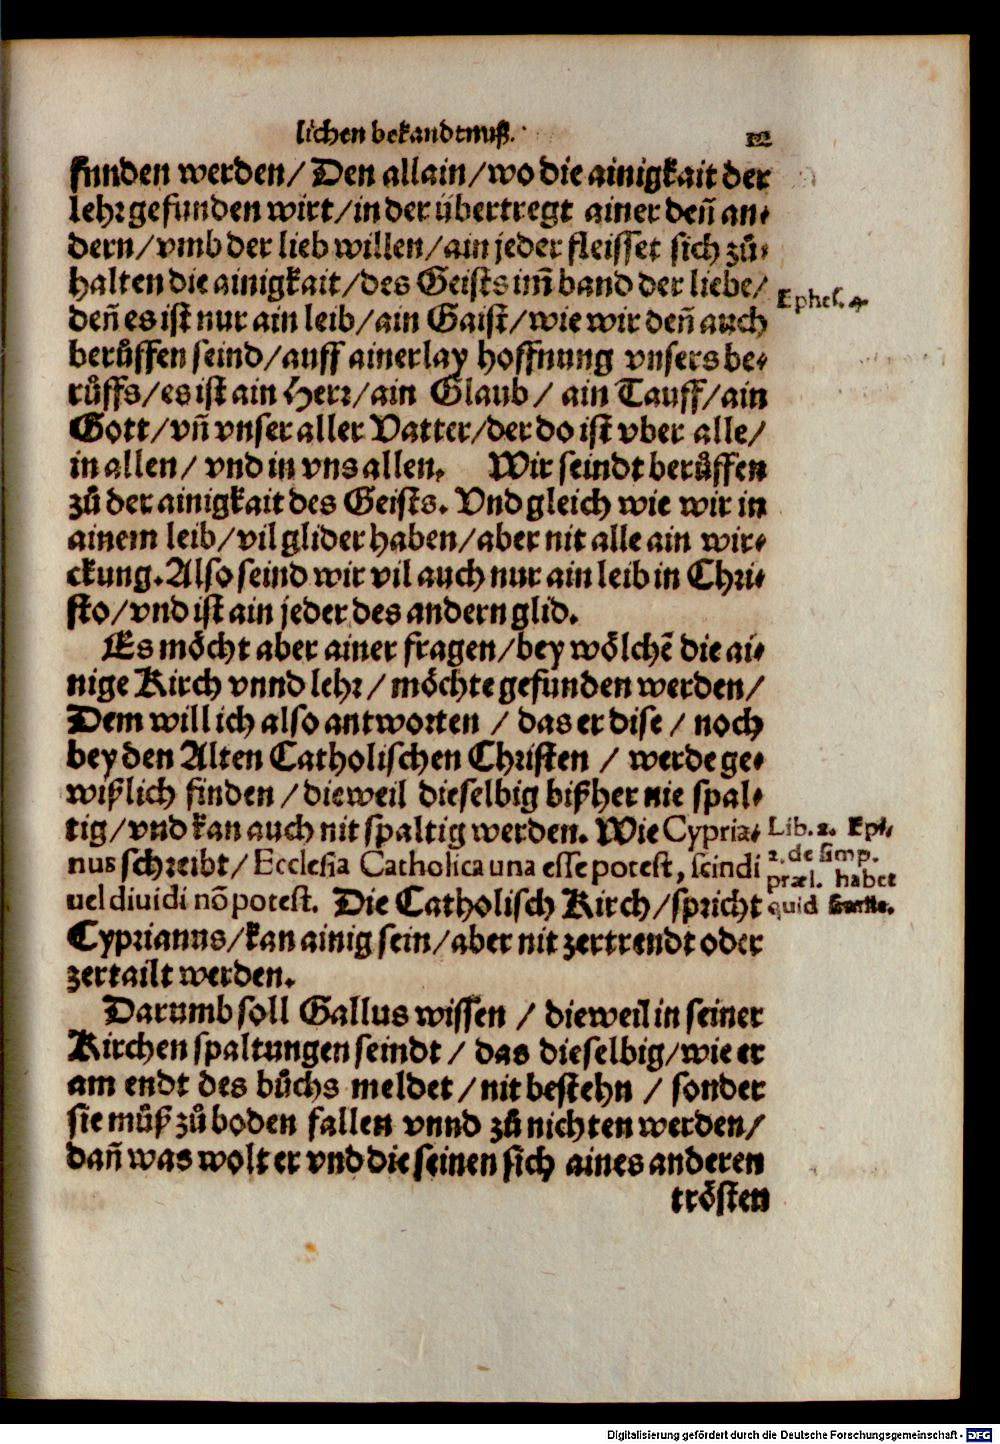 lichen bekandtnuß.
funden werden/ Den allain/ wo die ainigkait der
lehr gefunden wirt/ in der übertregt ainer deñ an-
dern/ vmb der lieb willen/ ain jeder fleisset sich zů-
halten die ainigkait/ des Geists im̃ band der liebe/
Ephes. 4.
deñ es ist nur ain leib/ ain Gaist/ wie wir deñ auch
berůffen seind/ auff ainerlay hoffnung vnsers be-
růffs/ es ist ain Herr/ ain Glaub/ ain Tauff/ ain
Gott/ vñ vnser aller Vatter/ der do ist vber alle/
in allen/ vnd in vns allen. Wir seindt berůffen
zů der ainigkait des Geists. Vnd gleich wie wir in
ainem leib/ vil glider haben/ aber nit alle ain wir-
ckung. Also seind wir vil auch nur ain leib in Chri-
sto/ vnd ist ain jeder des andern glid.
Es möcht aber ainer fragen/ bey wölchẽ die ai-
nige Kirch vnnd lehr/ möchte gefunden werden/
Dem will ich also antworten/ das er dise/ noch
bey den Alten Catholischen Christen/ werde ge-
wißlich finden/ dieweil dieselbig bißher nie spal-
tig/ vnd kan auch nit spaltig werden. Wie Cypria-
Lib. 2. Epi.
nus schreibt/ Ecclesia Catholica una esse potest, scindi
2. de simp.
præl. habet
uel diuidi nõ potest. Die Catholisch Kirch/ spricht
quid
Cyprianus/ kan ainig sein/ aber nit zertrendt oder
zertailt werden.
Darumb soll Gallus wissen/ dieweil in seiner
Kirchen spaltungen seindt/ das dieselbig/ wie er
am endt des bůchs meldet/ nit bestehn/ sonder
sie můß zů boden fallen vnnd zů nichten werden/
dañ was wolt er vnd die seinen sich aines anderen
trösten
Digitalisierung gefördert durch die Deutsche Forschungsgemeinschaft - DFG